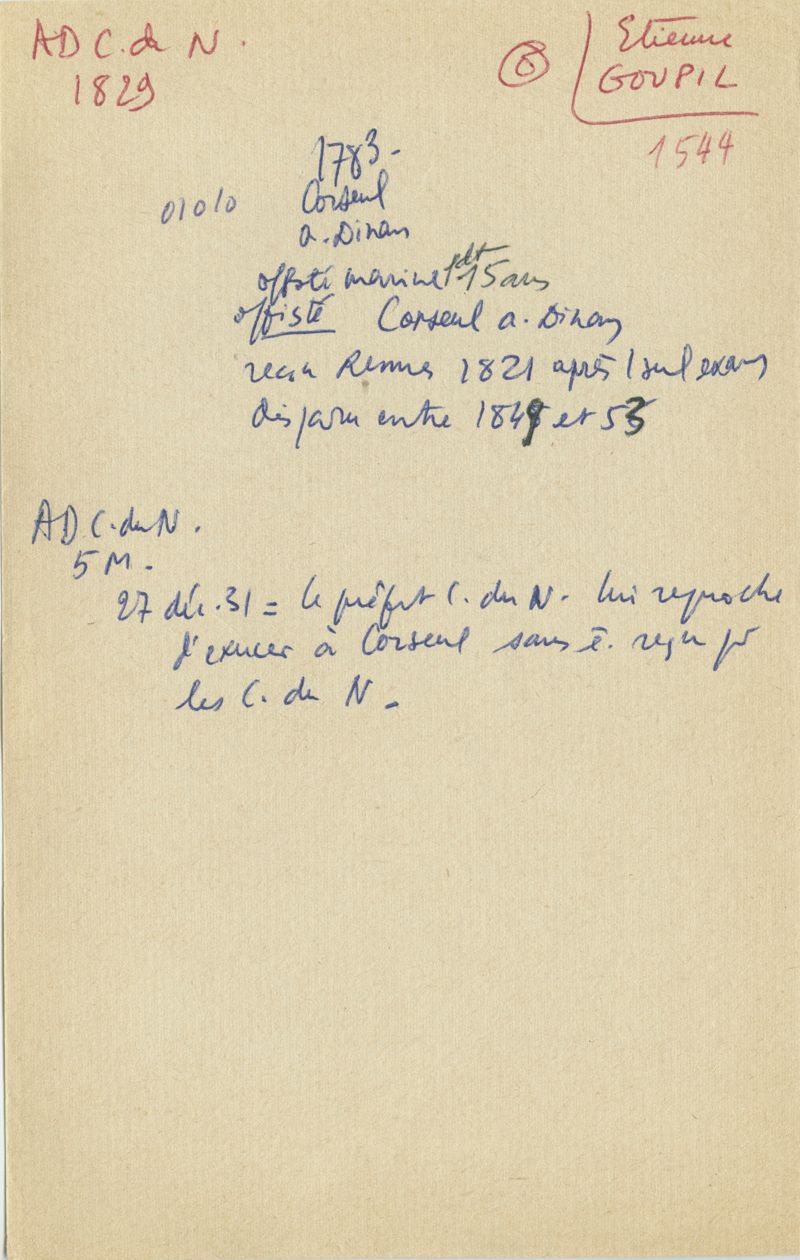 AD C. du N.
1829
⑧
Etienne
GOUPIL
1544
1783 -
01010
Corseul
a. Dinan
offsté marine pdt 15 ans
offisté Corseul a. Dinan
reçu Rennes 1821 après 1 seul exam
disparu entre 1849 et 53
AD C. du N.
5 M.
27 déc. 31 = le préfet C. du N. lui reproche
d'exercer à Corseul sans ê. reçu pr
les C. du N.